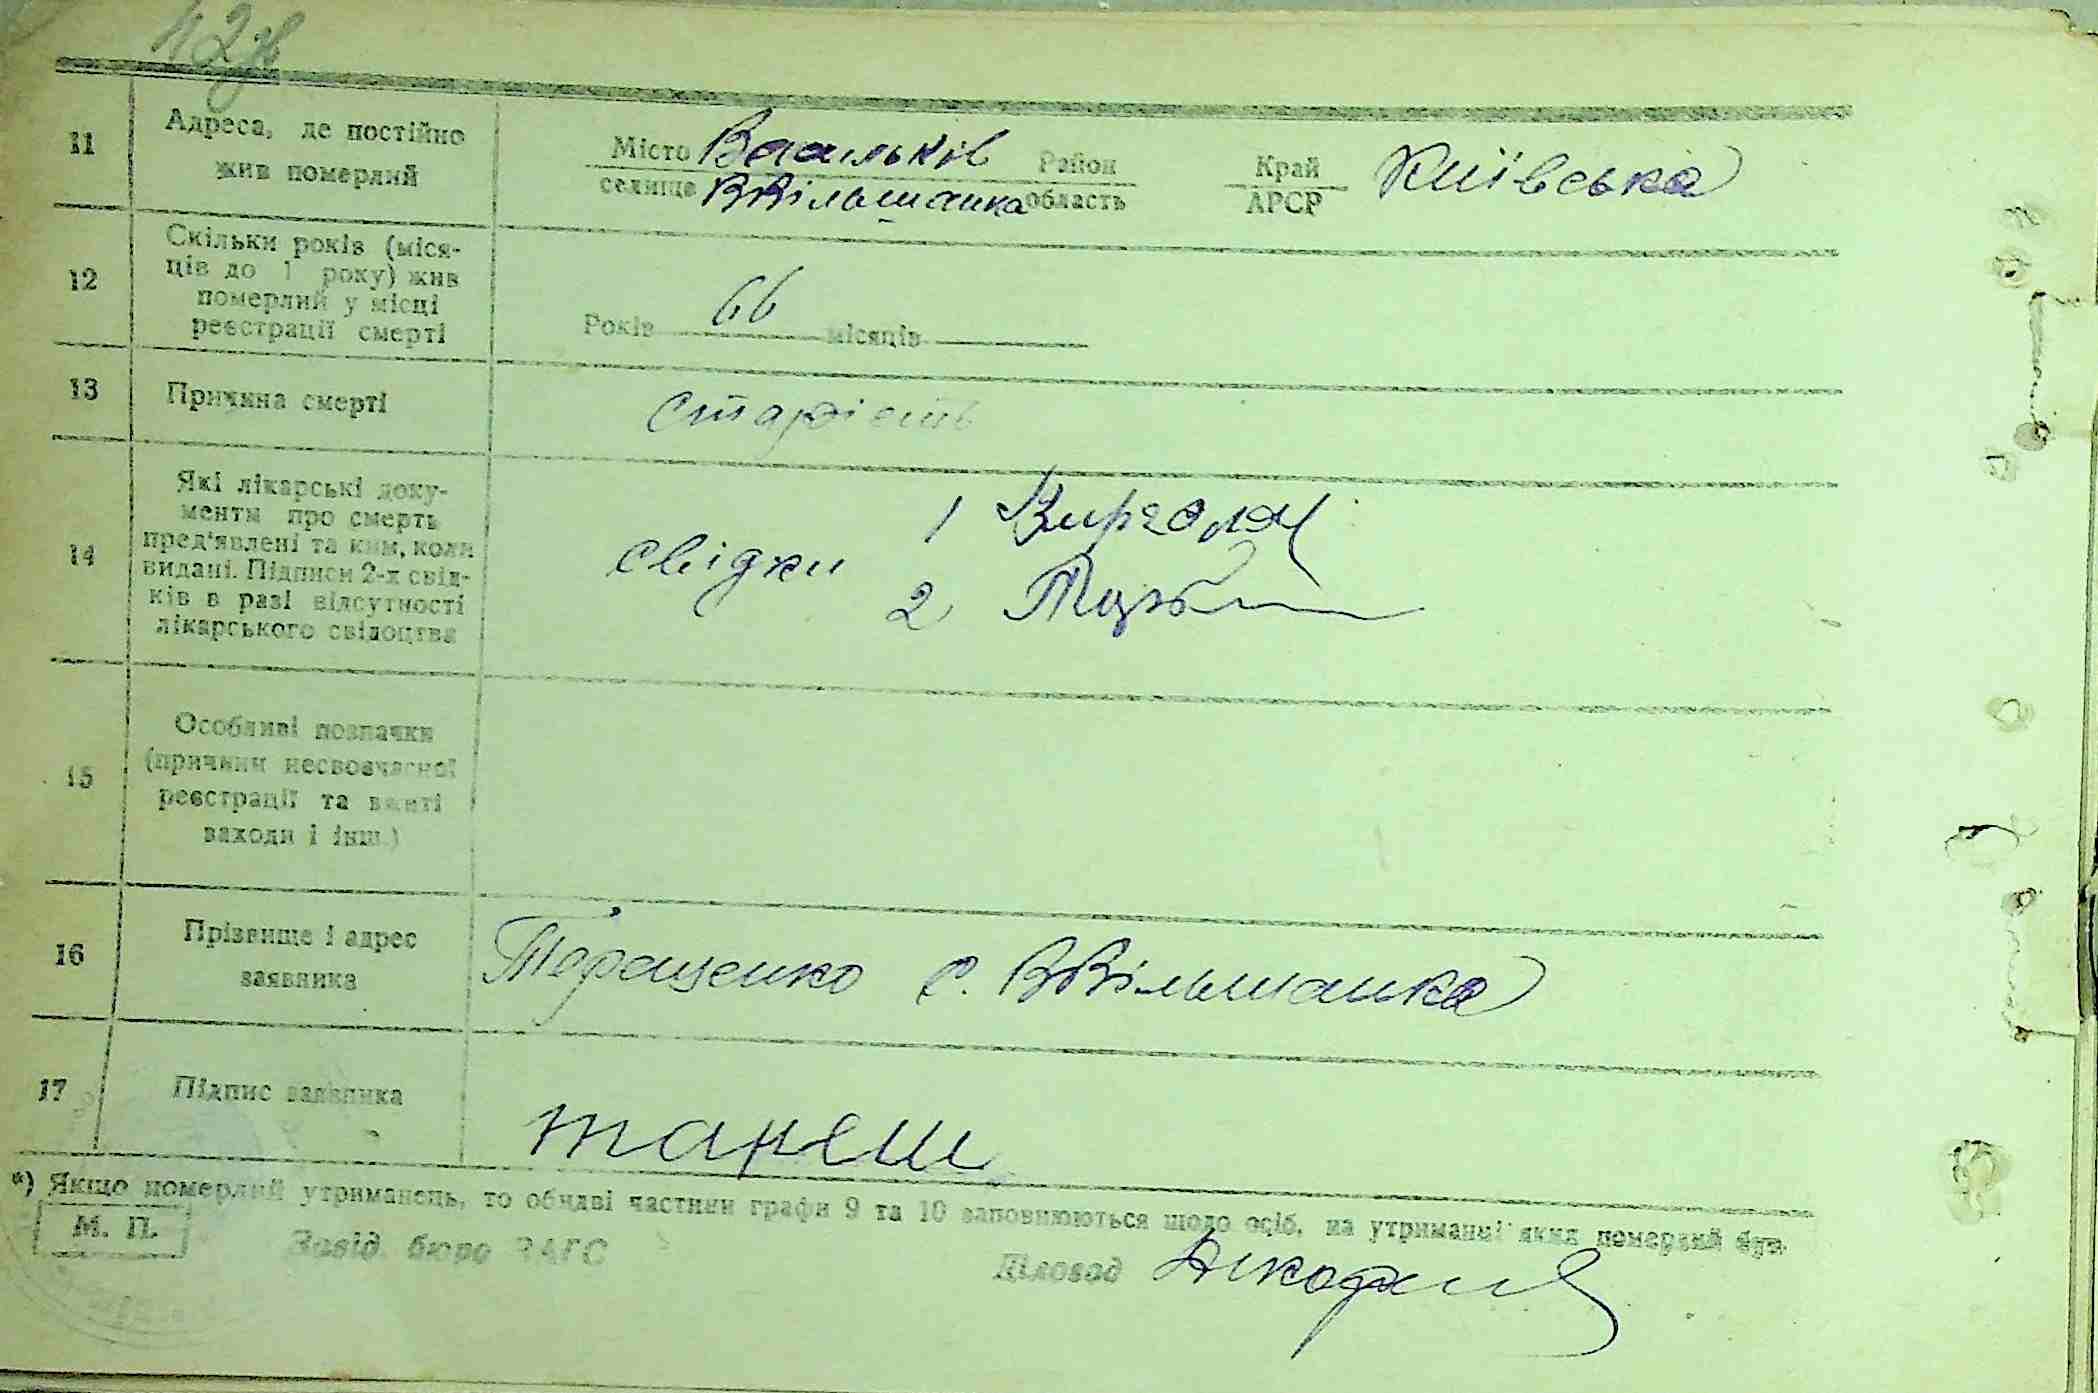 11
Адреса, де постійно
жив померлий
Місто Васильків Район
селище ВВільшанка область
Край
АРСР
Київська
12
Скільки років (міся-
ців до 1 року) жив
померлий у місці
реєстрації смерті
Років 66 місяців
13
Причина смерті
старість
14
Які лікарські доку-
менти про смерть
пред'явлені та ким, коли
видані. Підписи 2-х свід-
ків в разі відсутності
лікарського свідоцтва
свідки 1
2
15
Особливі позначки
(причини несвоєчасної
реєстрації та вжиті
заходи і інш.)
16
Прізвище і адрес
заявника
Терещенко с. ВВільшанка
17
Підпис заявника
*) Якщо померлий утриманець, то обидві частини графи 9 та 10 заповнюються щодо осіб, на утриманні яких померлий був.
М. П.
Завід. бюро ЗАГС
Діловод